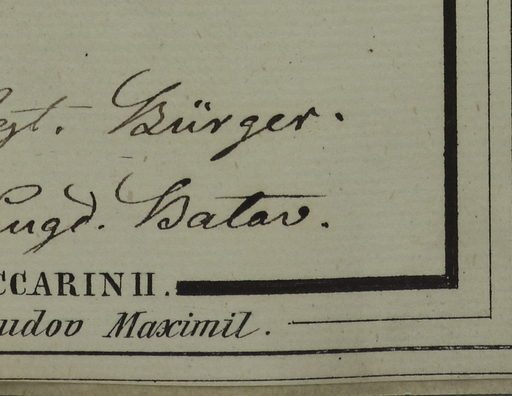 Bürger.
Lugd. Batav.
CCARINII.
udov Maximil.